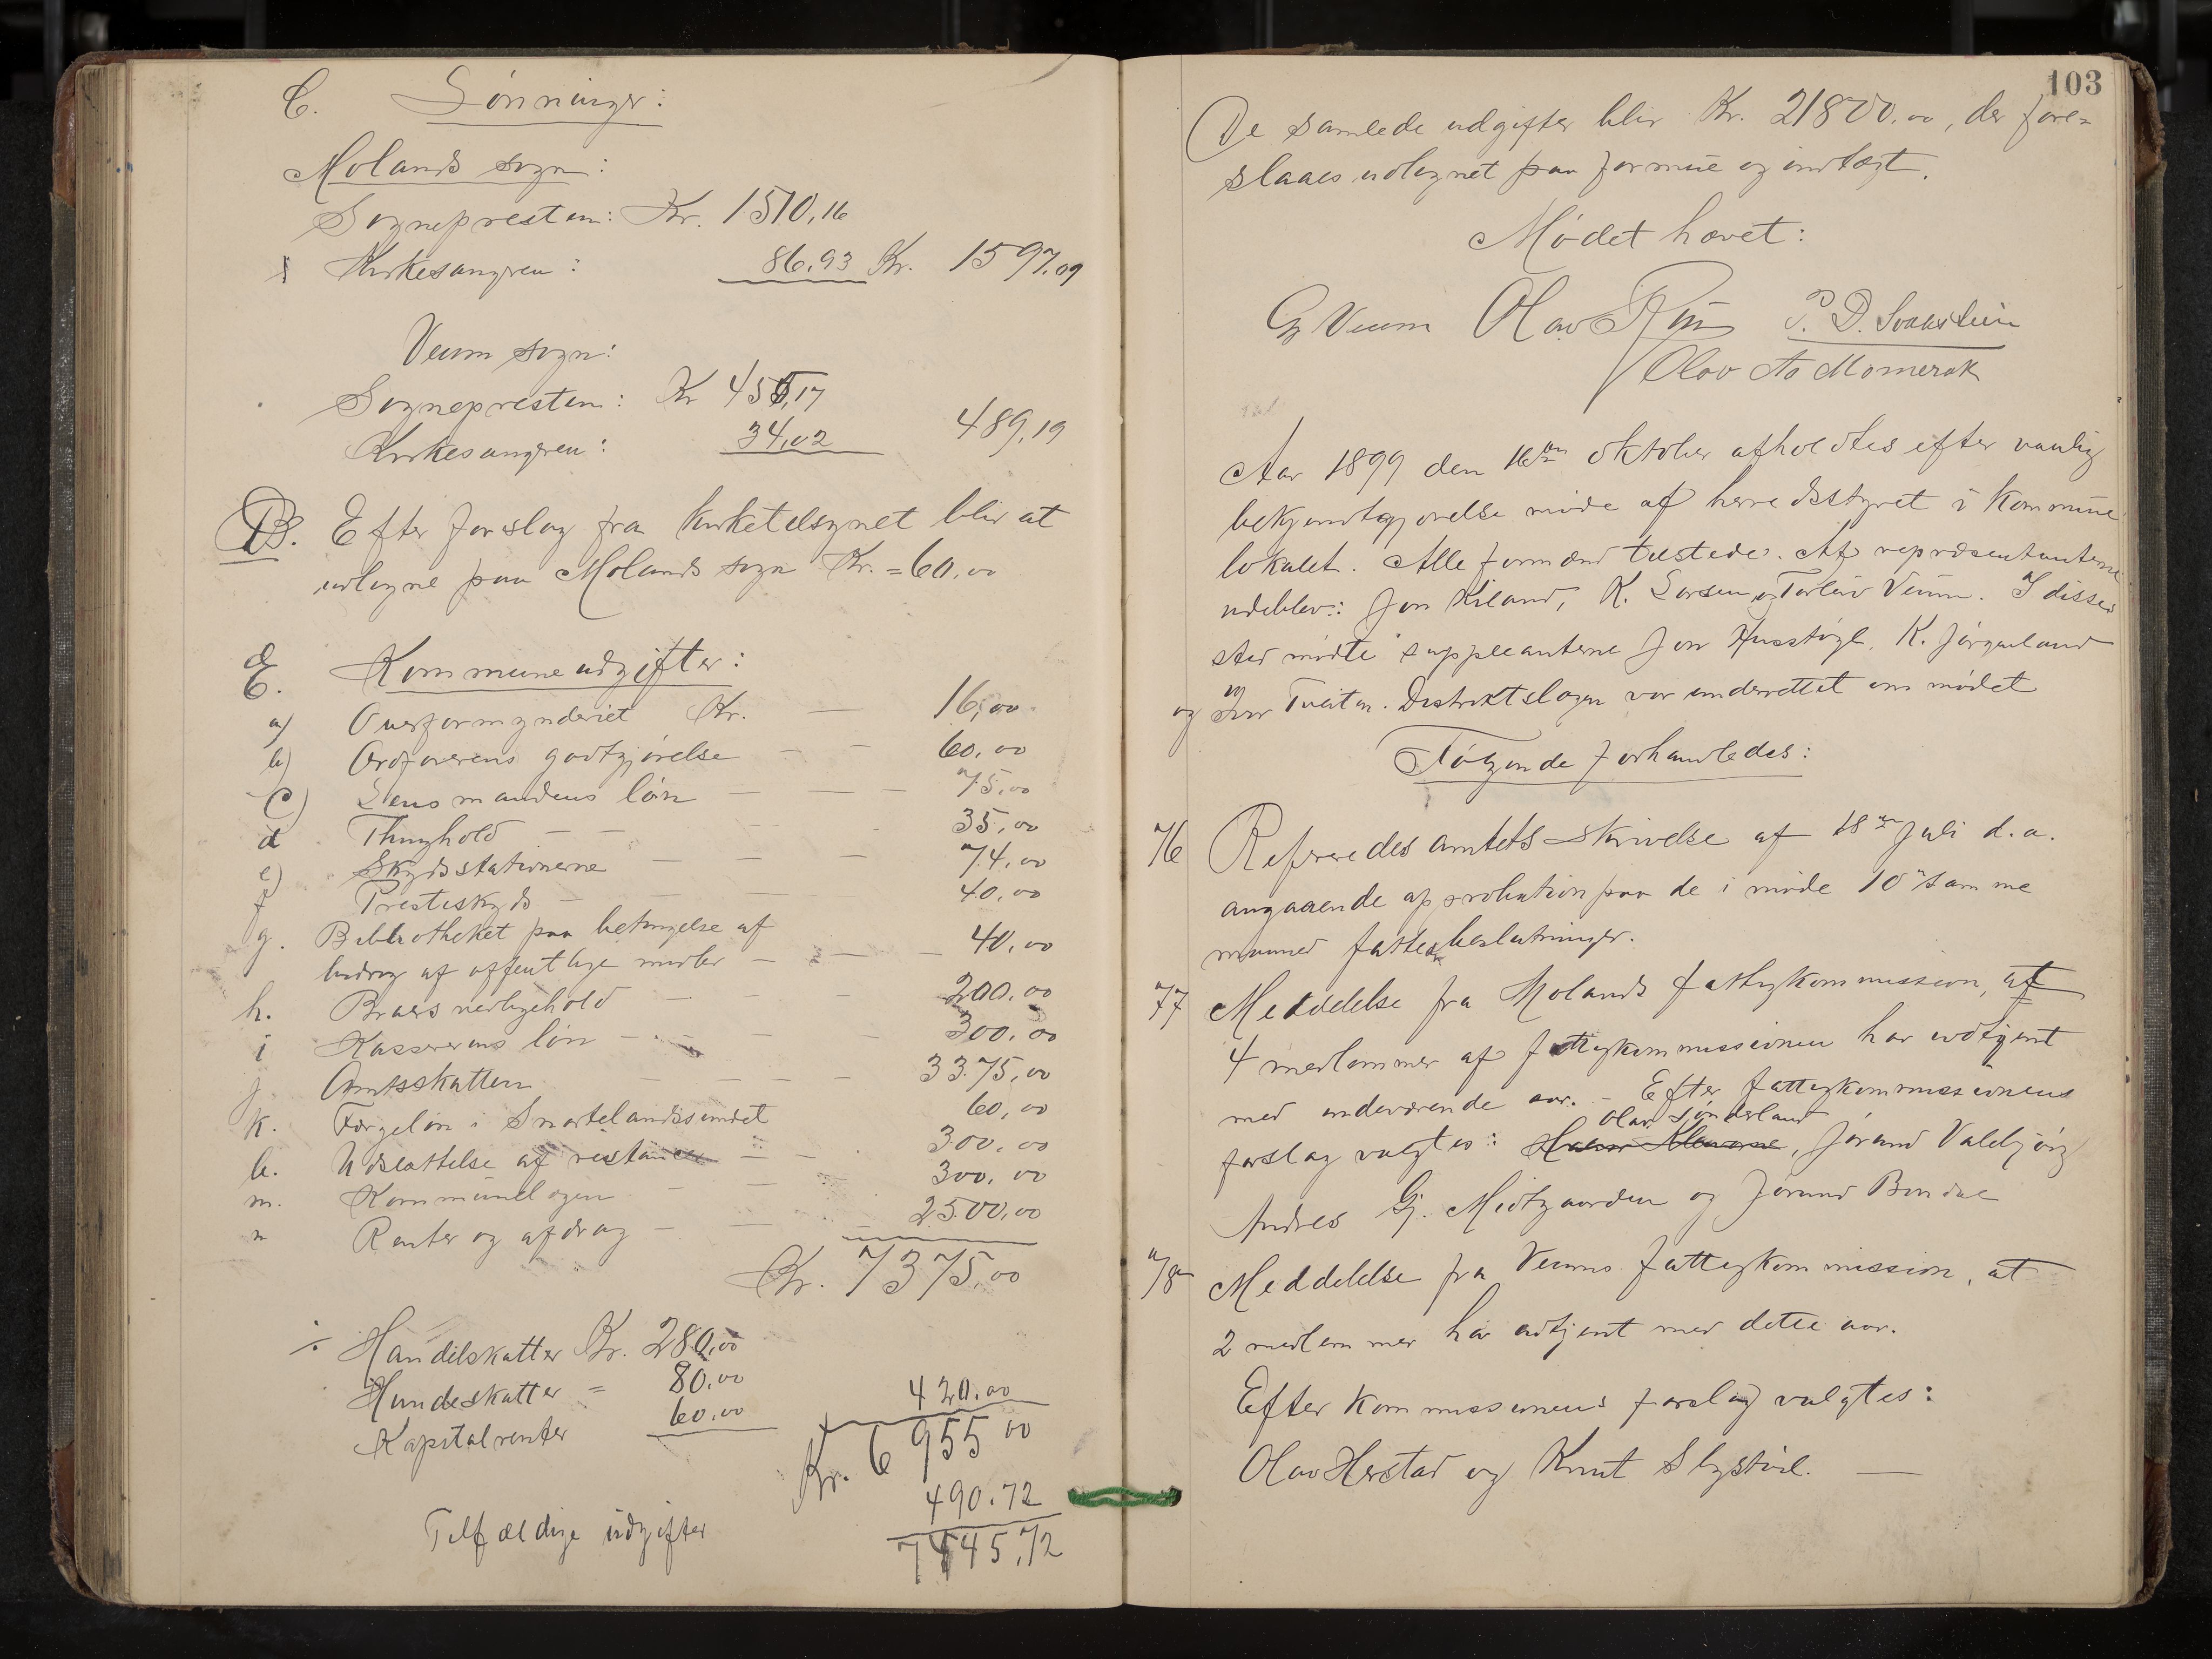 C. Lønninger:
Molands sogn:
Sognepresten: Kr. 1510,16
Kirkesangeren: 86,93 Kr. 1597,09
Veum sogn:
Sognepresten: Kr 455,17
Kirkesangeren: 34,02 489,19
D. Efter forslag fra kirketilsynet blir at
udligne paa Molands sogn Kr. = 60,00
E. Kommuneudgifter:
a) Overformynderiet Kr. — 16,00
b) Ordførerens godtgjørelse — — 60,00
c) Lensmandens løn — — — 75,00
d Thinghold — — 35,00
e) Skydsstationerne — — — 74,00
f Presteskyds — — — 40,00
g. Bibliotheket paa betingelse af
bidrag af offentlige midler — — — 40,00
h. Braers vedligehold — — 200,00
i Kassererens løn — — — 300,00
j. Amtsskatten — — — — 3375,00
k. Færgeløn i Smørtelandssundet 60,00
l. Udsættelse af restancer — — 300,00
m. Kommunelægen — — 300,00
n Renter og afdrag — — — 2500,00
Kr. 7375,00
÷ Handelskatter Kr. 280,00
Hundeskatter = 80,00 420,00
Kapitalrenter 60,00
Kr. 6955 00
490.72
Tilfældige udgifter 7445,72
103
De samlede udgifter blir Kr. 21800,00, der fore=
slaaes udlignet paa formue og indtægt.
Mødet hævet:
G Veum Olav P. D. Svaastein
Olav
Aar 1899 den 16de oktober afholdtes efter vanlig
bekjendtgjørelse møde af herredsstyret i kommune
lokalet. Alle formænd tilstede. Af repræsentanterne
udeblev: Jon Kiland, K. Larsen og Torleiv Veum. I disses
sted mødte suppleanterne Jon K. Jørgenland
og Tveiten. Distriktslægen var underrettet om mødet
Følgende forhandledes:
76 Refereredes amtets skrivelse af 18de juli d.a.
angaaende approbation paa de i møde 10de samme
maaned fattede beslutninger.
77 Meddelelse fra Molands fattigkommission, at
4 medlemmer af fattigkommissionen har udtjent
med indeværende aar. — Efter fattigkommissionens
Olav Sønderland
forslag valgtes: , Jørund Valebjørg
Andres Gj. Midtgaarden og Jørund Bondal
78 Meddelelse fra Veums fattigkommission, at
2 medlemmer har udtjent med dette aar.
Efter kommissionens forslag valgtes:
Olav Herstad og Knut Slystøil. —